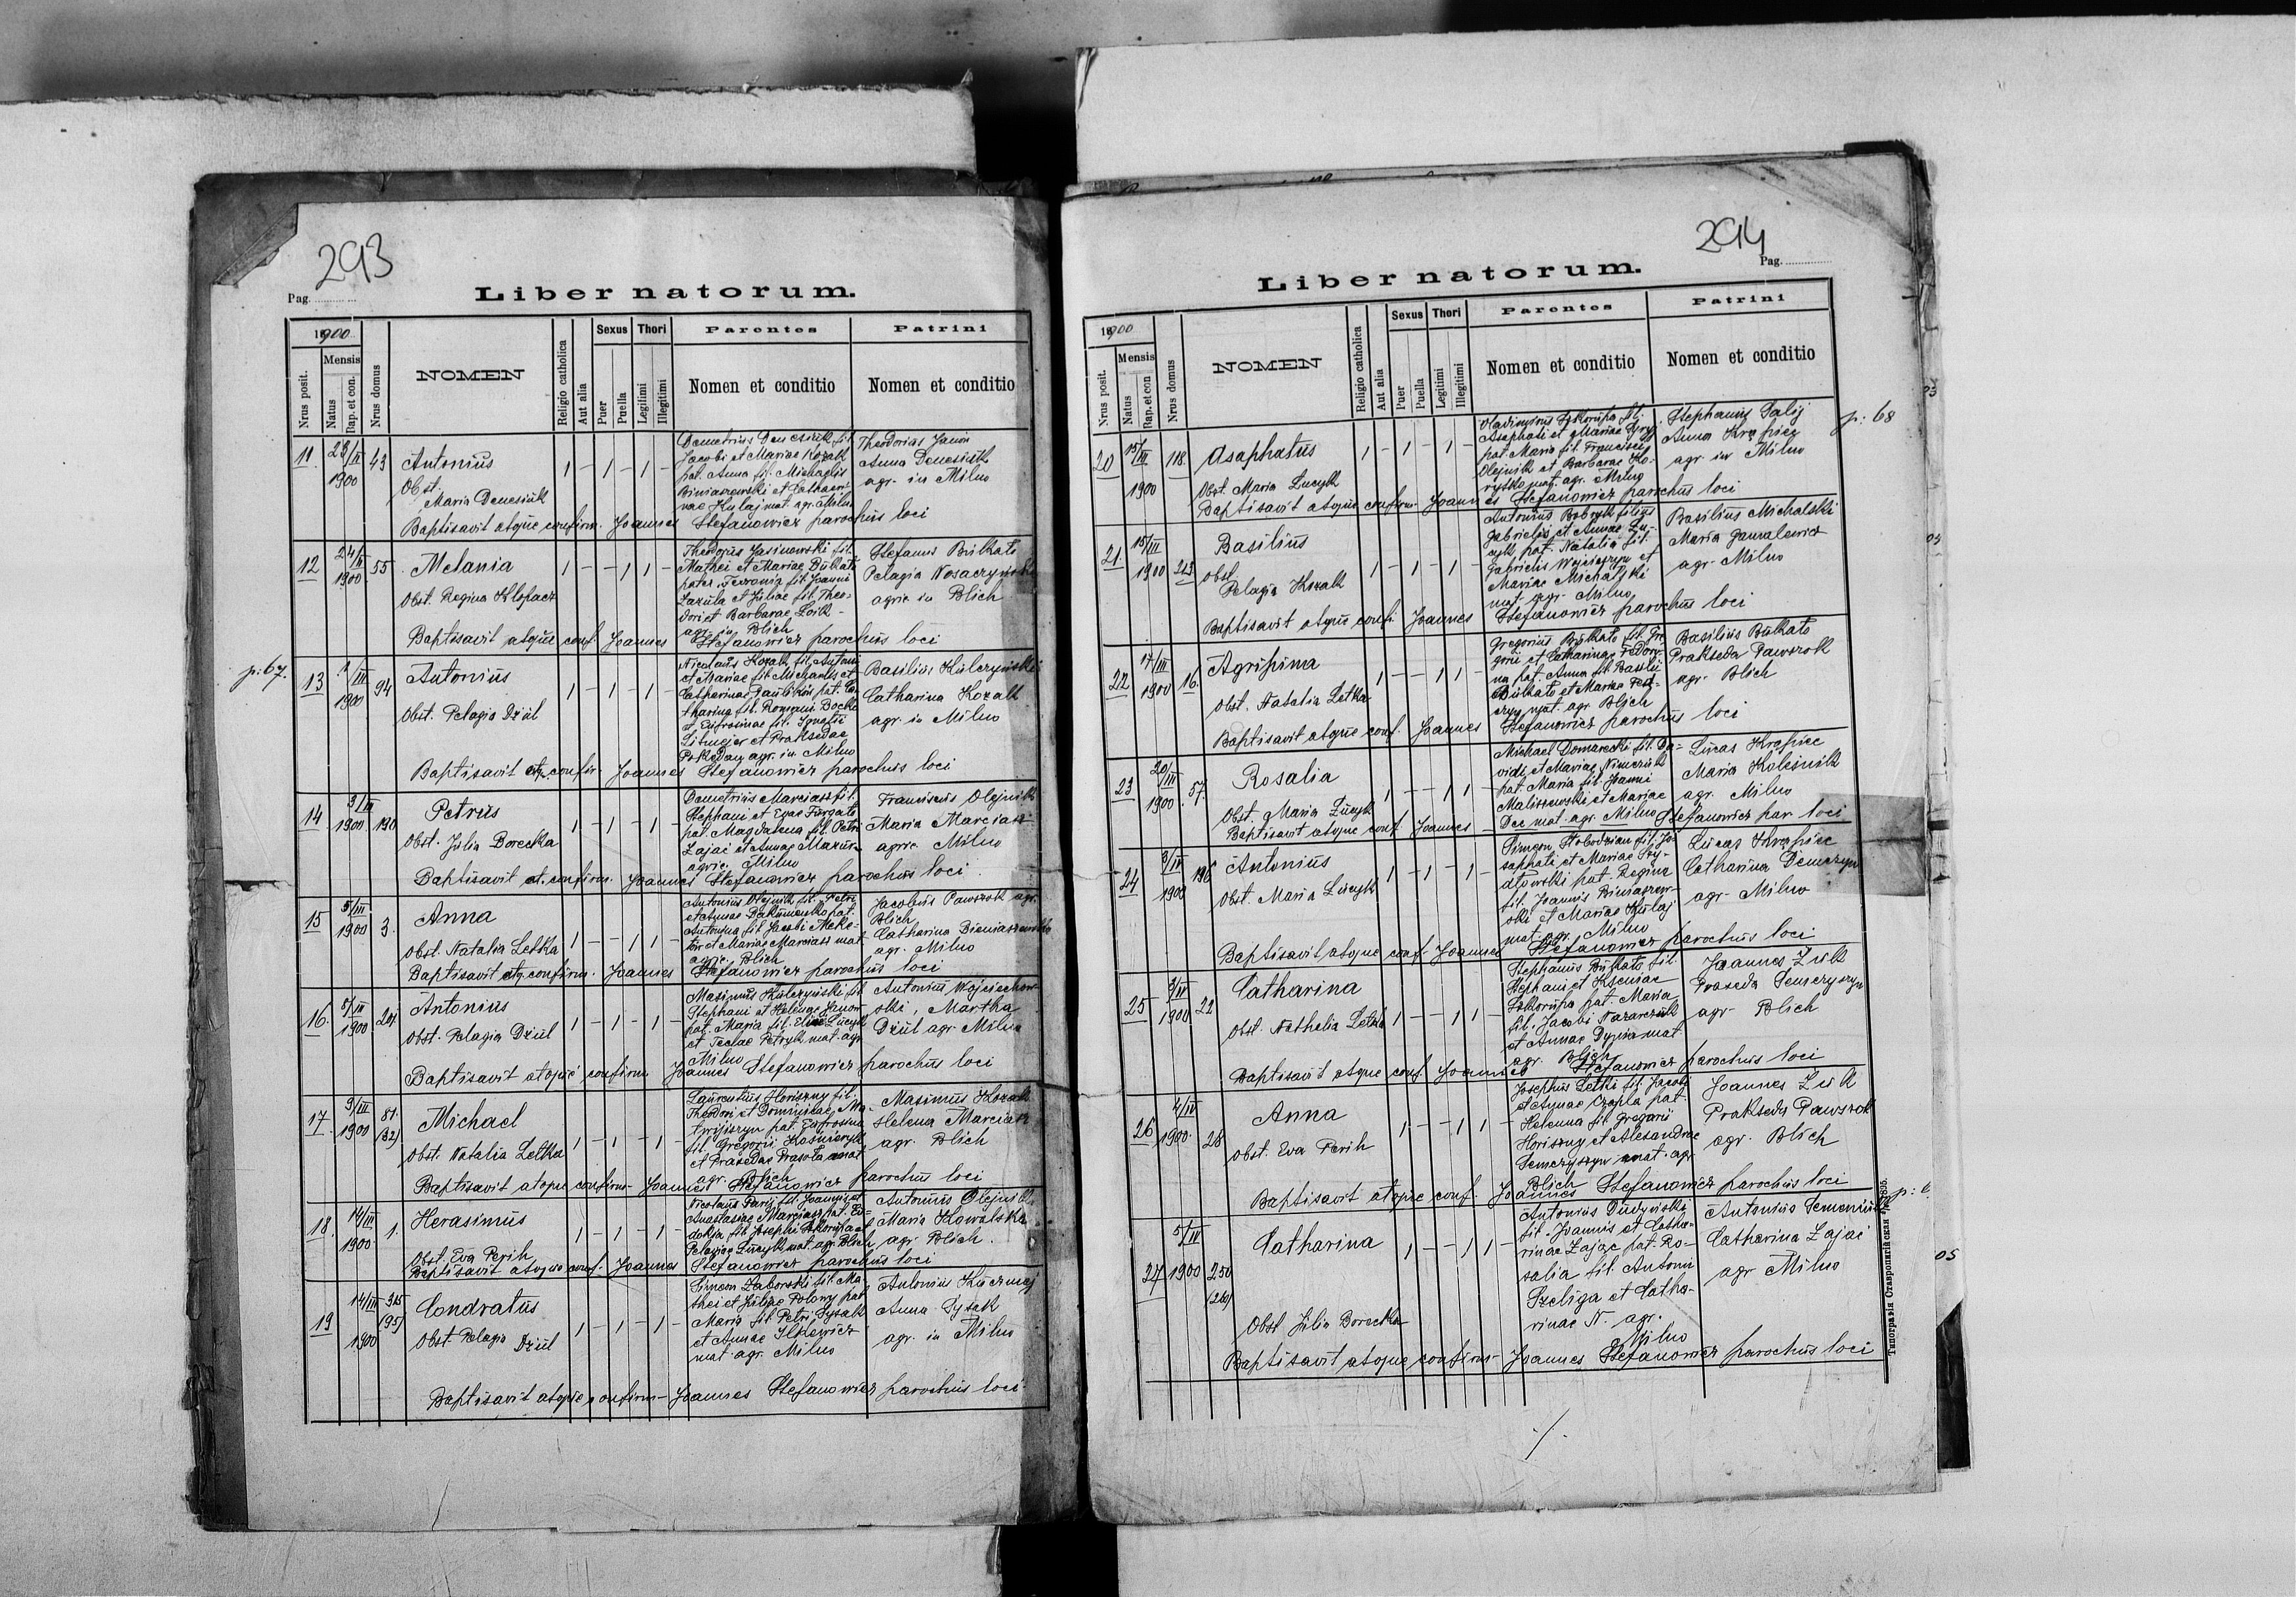 293
Pag.
Liber natorum.
1900
Nrus posit.
Mensis
Natus
Bap. et con.
Nrus domus
NOMEN
Religio catholica
Aut alia
Sexus
Puer
Puella
Thori
Legitimi
Illegitimi
Parentes
Nomen et conditio
Patrini
Nomen et conditio
11. 23/II 1900 43
Antonius
Obst.
Maria Denesiuk
1 - 1 - 1 -
Demetrius Denesiuk fil.
Jacobi et Mariae Kozak
pat. Anna fil. Michaelis
Biniaszewski et Cathari-
nae Kulaj mat. agr. Milno
Theodorius
Anna Denesiuk
agr. in Milno
Baptisavit atque confirm. Joannes Stefanowicz parochus loci
12 24/II 1900 55
Melania
Obst. Regina Klopacz
1 - - 1 1 -
Theodorus Jasinowski fil.
Mathei et Mariae Bułkato
pater,
Zazula et Juliae fil. Theo-
dori et Barbarae
agr. in Blich
Stefanus Bułkato
Pelagia
agric in Blich
Baptisavit atque conf. Joannes Stefanowicz parochus loci
p. 67.
13 1/III 1900 94
Antonius
Obst. Pelagia Dziul
1 - 1 - 1 -
Nicolaus Kozak fil. Antoni
et Mariae fil. Michaelis et
Catharinae pat. Ca-
tharina fil. Romani
et Eufrosinae fil. Ignatii
Litwejer et Praksedae
agr. in Milno
Basilius Kulczyński
Catharina Kozak
agr. in Milno
Baptisavit atq. confir. Joannes Stefanowicz parochus loci
14 3/III 1900 190
Petrus
Obst. Julia Borecka
1 - 1 - 1 -
Demetrius Marciasz fil.
Stephani et Evae Furgato
pat. Magdalena fil. Petri
Zając et Annae Mazur
agric. Milno
Franciscus Olejnik
Maria Marciasz
agric Milno
Baptisavit et confirm. Joannes Stefanowicz parochus loci.
15 5/III 1900 3.
Anna
Obst. Natalia Letka
1 - - 1 1 -
Antonius Olejnik fil. Petri
et Annae pat.
Antonina fil. Jacobi
et Mariae Marciasz mat
agric. Blich
Jacobus Pawszok agr.
Blich
Catharina Bieniaszewska
agr. Milno
Baptisavit atq. confirm. Joannes Stefanowicz parochus loci
16. 5/III 1900 204
Antonius
Obst. Pelagia Dziul
1 - 1 - 1 -
Maximus Kulczyński fil.
Stephani et Helenae
pat. Maria fil. Eliae Łucyk
et Teclae Petryk mat. agr
Milno
Antonius Wojciechow-
ski, Martha
Dziul agr. Milno
Baptisavit atque confirm Joannes Stefanowicz parochus loci
17. 9/III 1900 81. (32)
Michael
Obst. Natalia Letka
1 - 1 - 1 -
Laurentius Horiszny fil.
Theodori et Dominicae Ma-
twijiszyn pat. Eufrosina
fil. Gregorii
et Praxedae Prasola mat
agr. Blich
Maximus Kozak
Helena Marciasz
agr. Blich
Baptisavit atque confirm- Joannes Stefanowicz parochus loci
18. 14/III 1900 1.
Herasimus
Obst. Eva Perih
1 - 1 - 1 -
Nicolaus Parij fil. Joannis et
Anastasiae Marciasz pat. Eu-
dokja fil. Josephi Szkorupa et
Pelagiae Łucyk mat. agr. Blich
Antonius Olejnik
Maria Kowalska
agr. Blich.
Baptisavit atque conf. Joannes Stefanowicz parochus loci
19 14/III 1900 315 (95)
Condratus
Obst. Pelagia Dziul
1 - 1 - 1 -
Simeon Zaborski fil. Ma-
thei et Juliae Połowy pat
Maria fil. Petri Pysak
et Annae Ilkiewicz
mat. agr. Milno
Antonius Kuczmej
Anna Pysak
agr. in Milno
Baptisavit atque confirm- Joannes Stefanowicz parochus loci.
294
Pag.
Liber natorum.
1900
Nrus posit.
Mensis
Natus
Bap. et con
Nrus domus
NOMEN
Religio catholica
Aut alia
Sexus
Puer
Puella
Thori
Legitimi
Illegitimi
Parentes
Nomen et conditio
Patrini
Nomen et conditio
p. 68
20 15/III 1900 118.
Asaphatus
Obst. Maria Lucyk
1 - 1 - 1 -
Vladimirus Szkorupa fil.
Asaphati et Mariae
pat Maria fil. Francisci
Olejnik et Barbarae Ko-
rytko mat. agr. Milno
Stephanus Palij
Anna Krąpiec
agr. in Milno
Baptisavit atque confirm. Joannes Stefanowicz parochus loci
21. 15/III 1900 243
Basilius
Obst.
Pelagia Kozak
1 - 1 - 1 -
Antonius Bobryk filius
Gabrielis et Annae Łu-
cyk, pat. Natalia fil.
Gabrielis et
Mariae Michalski
mat. agr. Milno
Basilius Michalski
Maria Gawalewicz
agr. Milno
Baptisavit atque conf. Joannes Stefanowicz parochus loci
22 17/III 1900 16.
Agripina
Obst. Natalia Letka
1 - - 1 1 -
Gregorius Bułkato fil. Gre-
gorii et Catharinae
pat. Anna fil. Basilii
Bułkato et Mariae
mat. agr. Blich
Basilius Bułkato
Prakseda Pawszok
agr. Blich
Baptisavit atque conf. Joannes Stefanowicz parochus loci
23 20/III 1900. 57.
Rosalia
Obst. Maria Łucyk
1 - - 1 1 -
Michael Domarecki fil. Da-
vidi et Mariae Nimczuk
pat. Maria fil. Joanni
Maliszewski et Mariae
Dec mat. agr. Milno
Lucas Krąpiec
Maria Kolesnik
agr. Milno
Baptisavit atque conf Joannes Stefanowicz par. loci
24 3/IV 1900 196
Antonius
Obst. Maria Łucyk
1 - 1 - 1 -
Simeon Słobodzian fil. Jo-
saphati et Mariae Szy-
dłowski pat. Regina
fil. Joannis Biniaszew-
ski et Mariae Kulaj
mat. agr. Milno
Lucas Krąpiec
Catharina
agr. Milno
Baptisavit atque conf. Joannes Stefanowicz parochus loci
25 3/IV 1900 22
Catharina
Obst. Nathalia Letka
1 - - 1 1 -
Stephanus Bułkato fil.
Stephani et Kseniae
Szkorupa pat. Maria
fil. Jacobi Nazarczuk
et Annae mat
agr. Blich
Joannes Żuk
Praxeda Semczyszyn
agr. Blich
Baptisavit atque conf. Joannes Stefanowicz parochus loci
26 4/IV 1900. 28
Anna
Obst. Eva Perih
1 - - 1 1 -
Josephus Letki fil. Jacobi
et Annae Czapla pat
Helenna fil. Gregorii
Horiszny et Alexandrae
Semczyszyn mat. agr
Blich
Joannes Żuk
Prakseda Pawszok
agr. Blich
Baptisavit atque conf. Joannes Stefanowicz parochus loci
27 5/IV 1900 250
Catharina
Obst. Julia Borecka
1 - - 1 1 -
Antonius Dudyński
fil. Joannis et Catha-
rinae Zając pat. Ro-
salia fil. Antoni
Szeliga et Catha-
rinae N. agr.
Milno
Antonius
Catharina Zając
agr Milno
Baptisavit atque confirm- Joannes Stefanowicz parochus loci
Типографія Ставропигійская
05